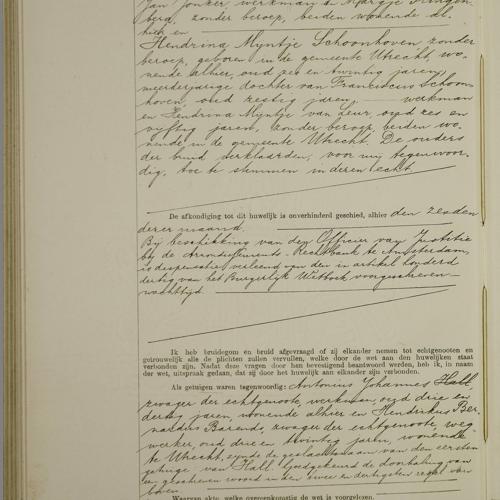 Jan Jonker, werkman & Maartje Klingen-
berg, zonder beroep, beiden wonende al-
hier en
Hendrina Myntje Schoonhoven zonder
beroep, geboren in de gemeente Utrecht, wo-
nende alhier, oud zes en twintig jaren,
meerderjarige dochter van Franciscus Schoon-
hoven, oud zestig jaren, werkman
en Hendrina Myntje van Leur, oud zes en
vijftig jaren, zonder beroep, beiden wo-
nende in de gemeente Utrecht. De ouders
der bruid verklaarden, voor mij tegenwoor-
dig, toe te stemmen in deren echt.
De afkondiging tot dit huwelijk is onverhinderd geschied, alhier den zesden
derer maand.
Bij beschikking van den Officier van Justitie
bij de Arrondissements-Rechtbank te Amsterdam,
is dispensatie verleend van den in artikel honderd
dertig van het Burgerlijk Wetboek voorgeschreven
wachttijd.
Ik heb bruidegom en bruid afgevraagd of zij elkander nemen tot echtgenooten en
getrouwelijk alle de plichten zullen vervullen, welke door de wet aan den huwelijken staat
verbonden zijn. Nadat deze vragen door hen bevestigend beantwoord werden, heb ik, in naam
der wet, uitspraak gedaan, dat zij door het huwelijk aan elkander zijn verbonden.
Als getuigen waren tegenwoordig: Antonius Johannes Hall
zwager der echtgenoote, werkman, oud drie en
dertig jaren, wonende alhier en Hendrikus Ber-
nardus Barends, zwager der echtgenoote, weg-
werker, oud drie en twintig jaren, wonende
te Utrecht, zijnde de geslachtsnaam van den eersten
getuige van Hall. Goedgekeurd de doorhaling van
een geschreven woord in den twee en dertigsten regel van
boven
Waarvan akte, welke overeenkomstig de wet is voorgelezen.